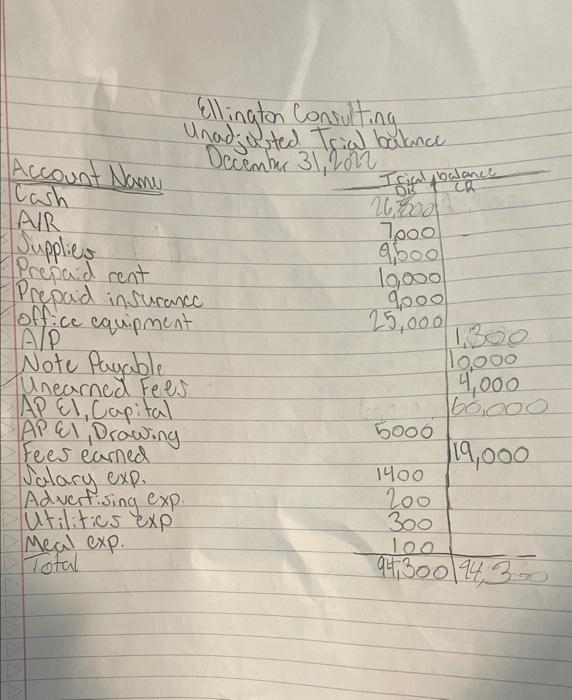 Ellington Consulting
Unadjusted Trial balance
December 31, 2022
Account Name Trial balance
DR CR
Cash 26,800
A/R 7,000
Supplies 9,500
Prepaid rent 10,000
Prepaid insurance 9,000
office equipment 25,000
A/P 1,300
Note Payable 10,000
Unearned Fees 4,000
AP El, Capital 60,000
AP El, Drawing 5000
Fees earned 19,000
Salary exp. 1400
Advertising exp. 200
Utilities exp 300
Meal exp. 100
Total 94,300 94,300